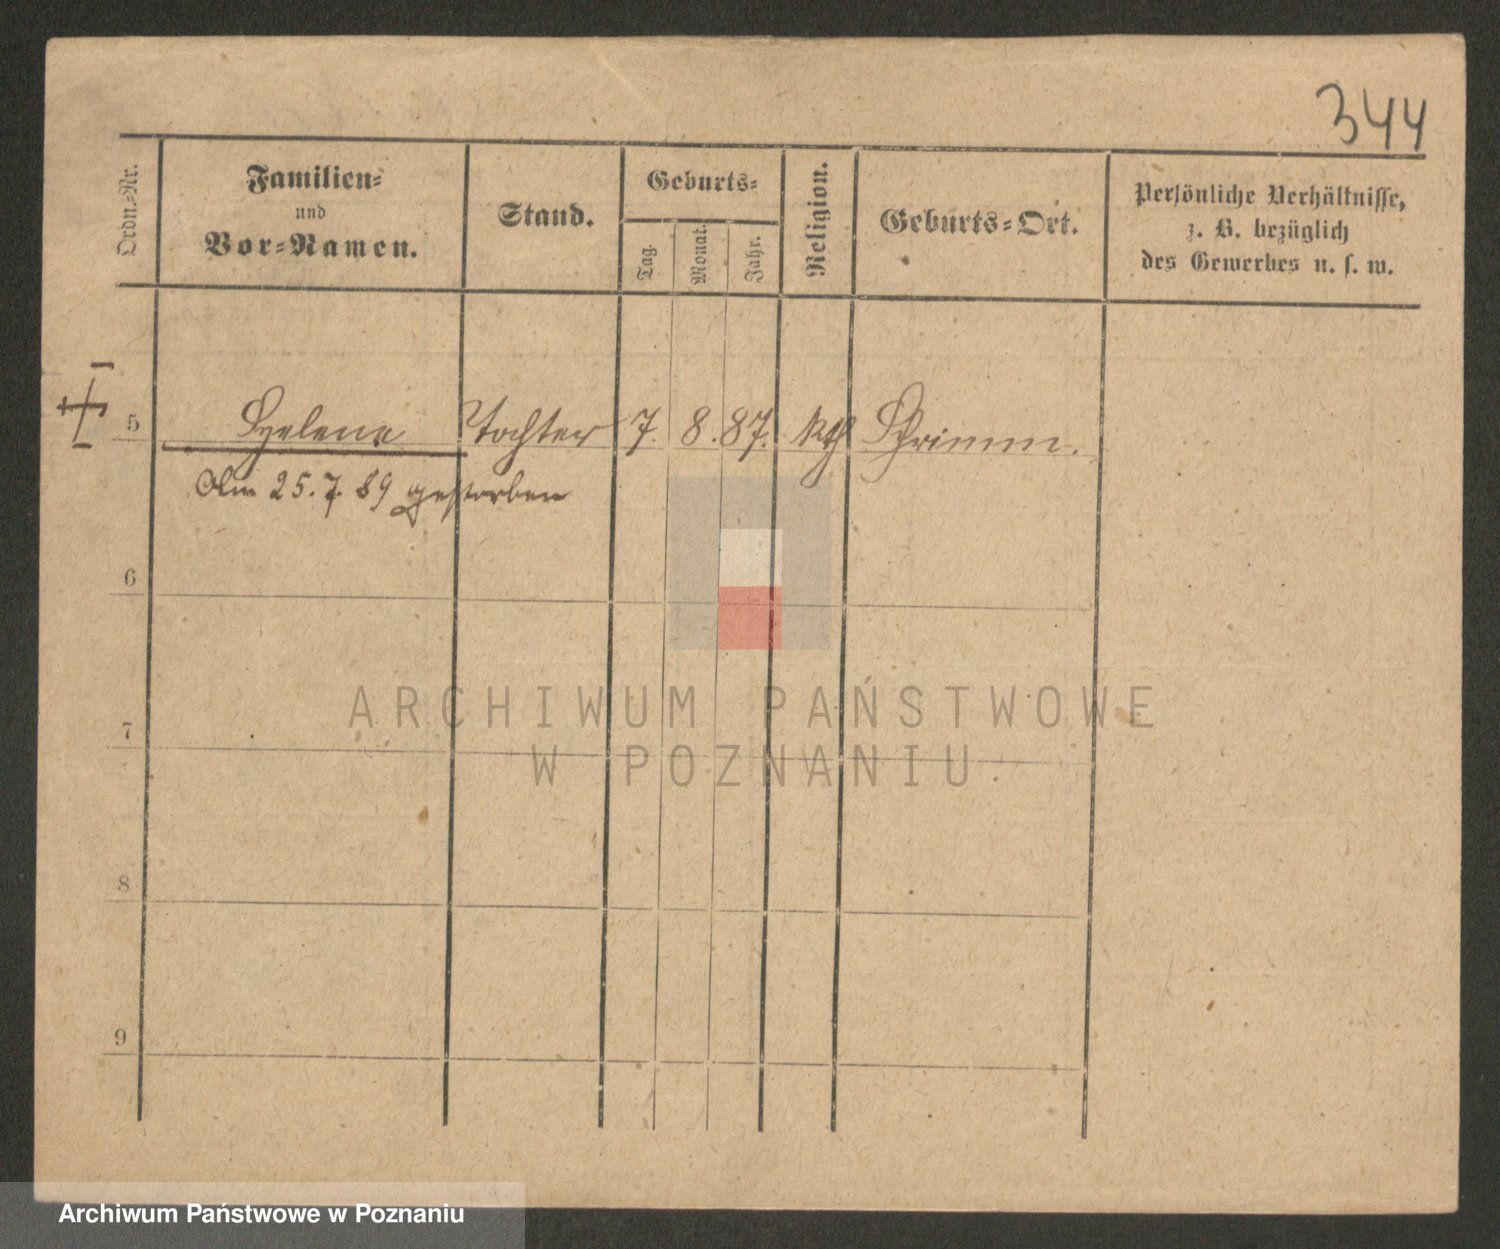 344
Ordn.-Nr.
Familien-
und
Vor-Namen.
Stand.
Geburts-
Tag.
Monat.
Jahr.
Religion.
Geburts-Ort.
Persönliche Verhältnisse,
z. B. bezüglich
des Gewerbes u. s. w.
5 Helene Tochter 7. 8. 87. kth Schrimm.
Am 25.7.89 gestorben
6
7
8
9
ARCHIWUM PAŃSTWOWE
W POZNANIU
Archiwum Państwowe w Poznaniu